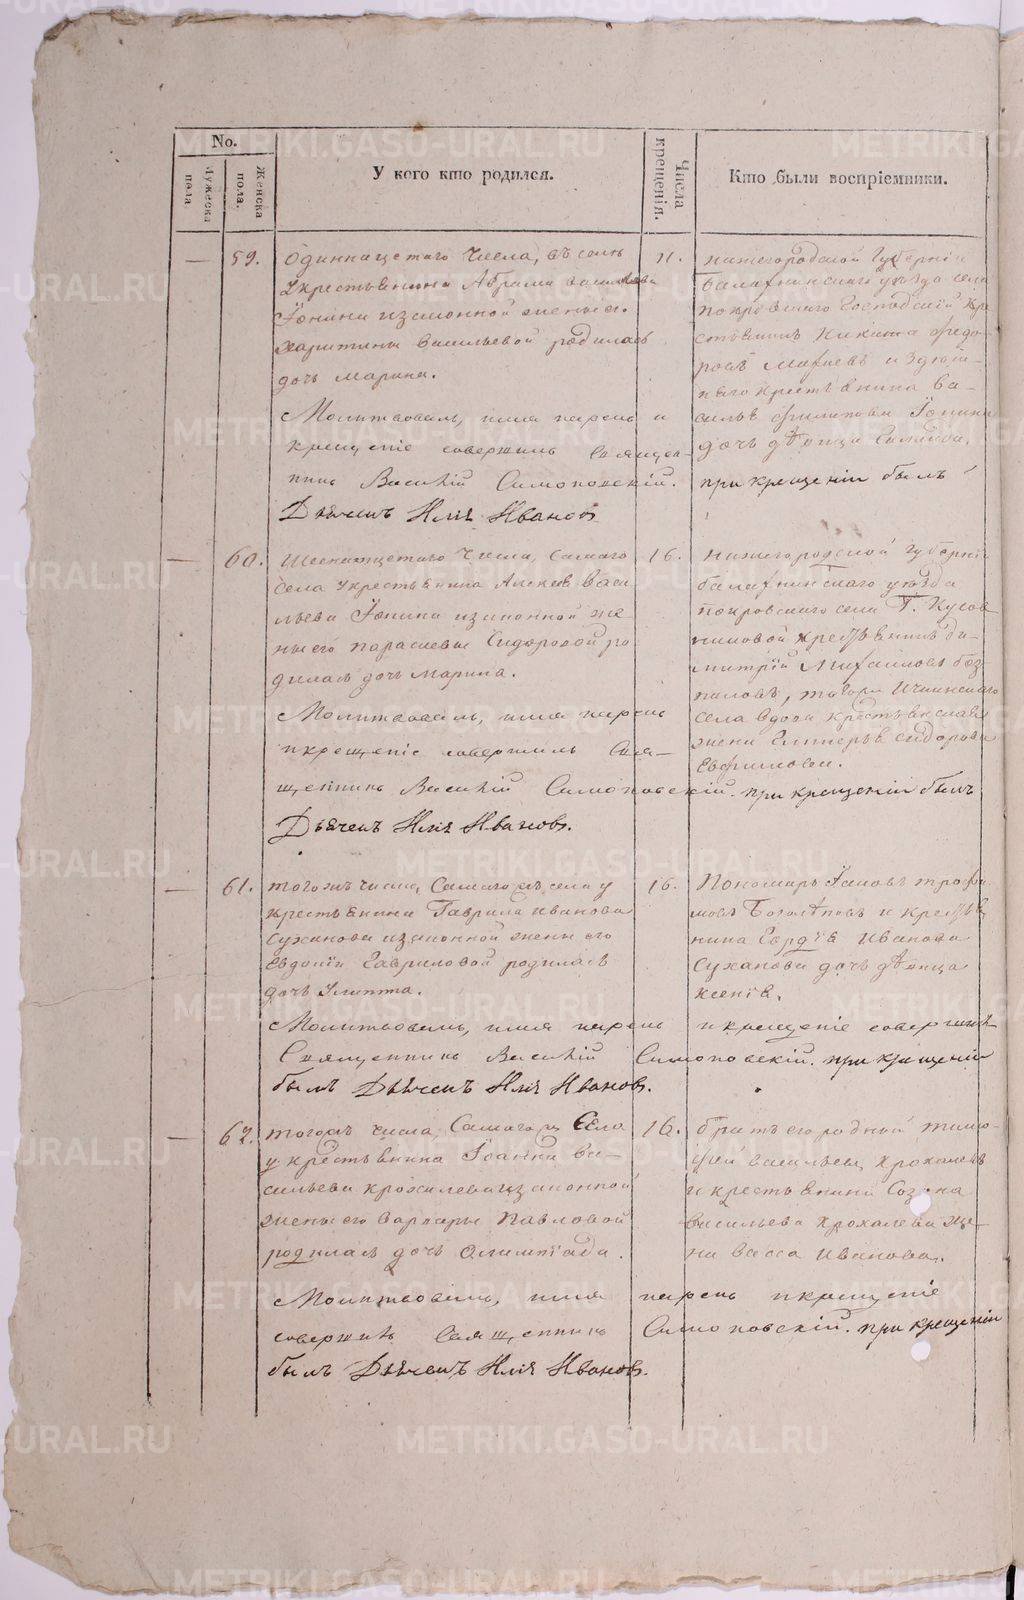 No.
Мужеска пола
Женска пола.
У кого кто родился.
Числа крещенія.
Кто были воспріемники.
59.
одиннацетаго Числа, въ селѣ
укрестьянина Абрама васильева
Іонина иззаконной жены его
харитины васильевой родилась
дочь Марина.
Молитвовалъ, имя нарекъ и
крещеніе совершилъ Священ-
никъ Василій Симоновскій.
Дьячекъ Илія Ивановъ
11.
нижегородской Губерніи
балахнинскаго уѣзда села
покровскаго Господскій кре
стьянинъ Никита Федо-
ровъ
крестьянина ва-
силья филипова Іонина
дочь дѣвица
при крещеніи былъ
60.
Шеснатцетаго Числа, Самаго
села укрестьянина Алексея Васи
льева Іонина иззаконной же
ны его парасковьи Сидоровой ро
дилась дочь Марина.
Молитвовалъ, имя нарекъ
икрещеніе совершилъ Свя-
щенникъ Василій Симоновскій. при крещеніи былъ
Дьячекъ Илія Ивановъ.
16.
нижегородской губерніи
балахнинскаго уѣзда
покровскаго села Г.
крестьянинъ ди-
митрій Михайловъ
тогожъ
села вдова крестьянская
жена Гликерья сидорова
Евфимова.
61.
тогожъ числа, Самаго жъ села у
крестьянина Гаврила иванова
Суханова иззаконной жены его
Евдокіи Гавриловой родилась
дочь Улита.
Молитвовалъ, имя нарекъ икрещеніе совершилъ
Священникъ Василій Симоновскій. при крещеніи
былъ Дьячекъ Илія Ивановъ.
16.
Пономарь Іаковъ трофи
мовъ и крестья
нина Гордѣя Иванова
Суханова дочь дѣвица
ксенія.
62.
тогожъ числа, Самаго жъ Села
у крестьянина Іоанна ва-
сильева крохалева иззаконной
жены его варвары Павловой
родилась дочь Олимпіада.
Молитвовалъ, имя нарекъ икрещеніе
совершилъ Священникъ Симоновскій. при крещеніи
былъ Дьячекъ Илія Ивановъ.
16.
братъ его родной тимо-
фей васильевъ крохалевъ
и крестьянина Созона
васильева крохалева же-
на васса иванова.
METRIKI.GASO-URAL.RU